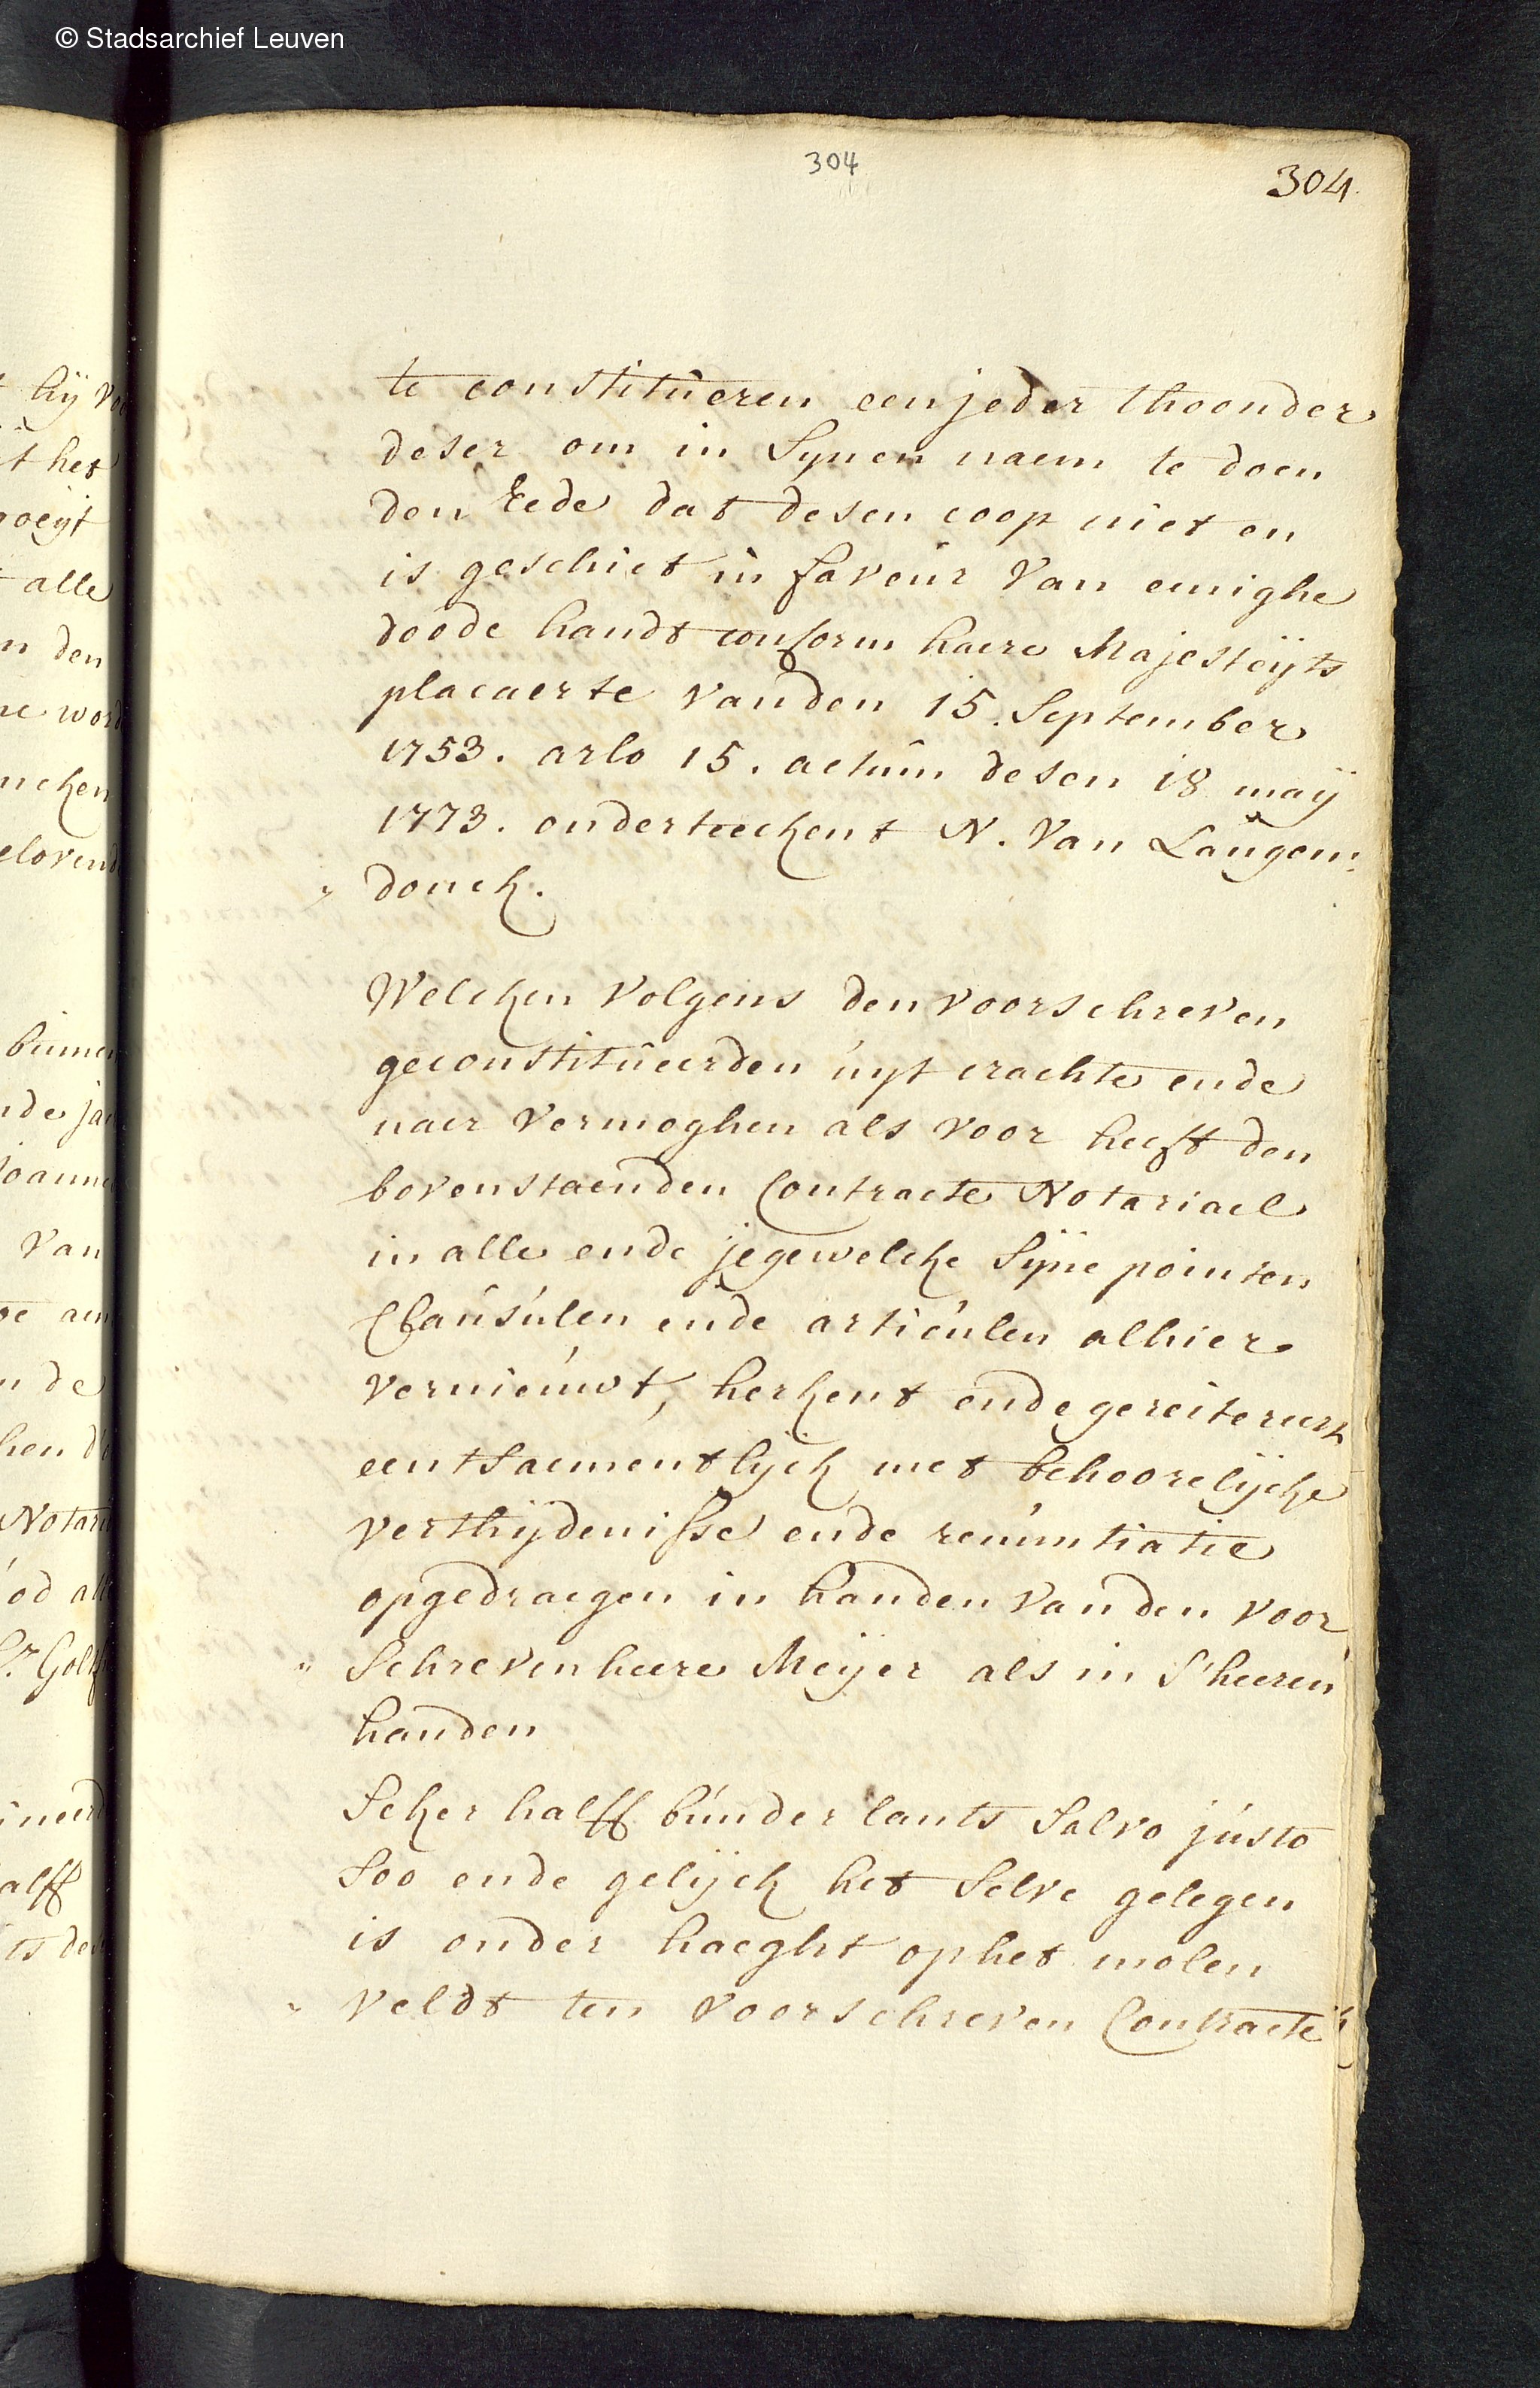 © Stadsarchief Leuven
304
304.
te constitueren een jeder thoonder
deser om in Synen naem te doen
den Eede dat desen coop niet en
is geschiet in faveur van eenighe
doode handt conform haere Majesteijts
placaerte vanden 15. September
1753. arlo 15. actum desen 18 maij
1773. onderteeckent N. Van Langen:
donck.
Welcken volgens den voorschreven
geconstitueerden uyt crachte ende
naer vermoghen als voor heeft den
bovenstaenden Contracte Notariael
in alle ende jegewelcke Syne pointen
Clausulen ende articulen alhier
vernieuwt, herkent ende gereitereert
eentsaementlyck met behoorelijcke
verthijdenisse ende renuntiatie
opgedraegen in handen vanden voor
" Schreven heere Meijer als in S'heeren
handen
Seker halff bunder lants Salvo justo
Soo ende gelijck het Selve gelegen
is onder haeght op het molen
" veldt ten voorschreven Contracte
hij voo
t het
alle
n den
ne word
ncken
elovend
binnen
nde jae
Joanne
van
n de
Notari
Sr. Golf
alff